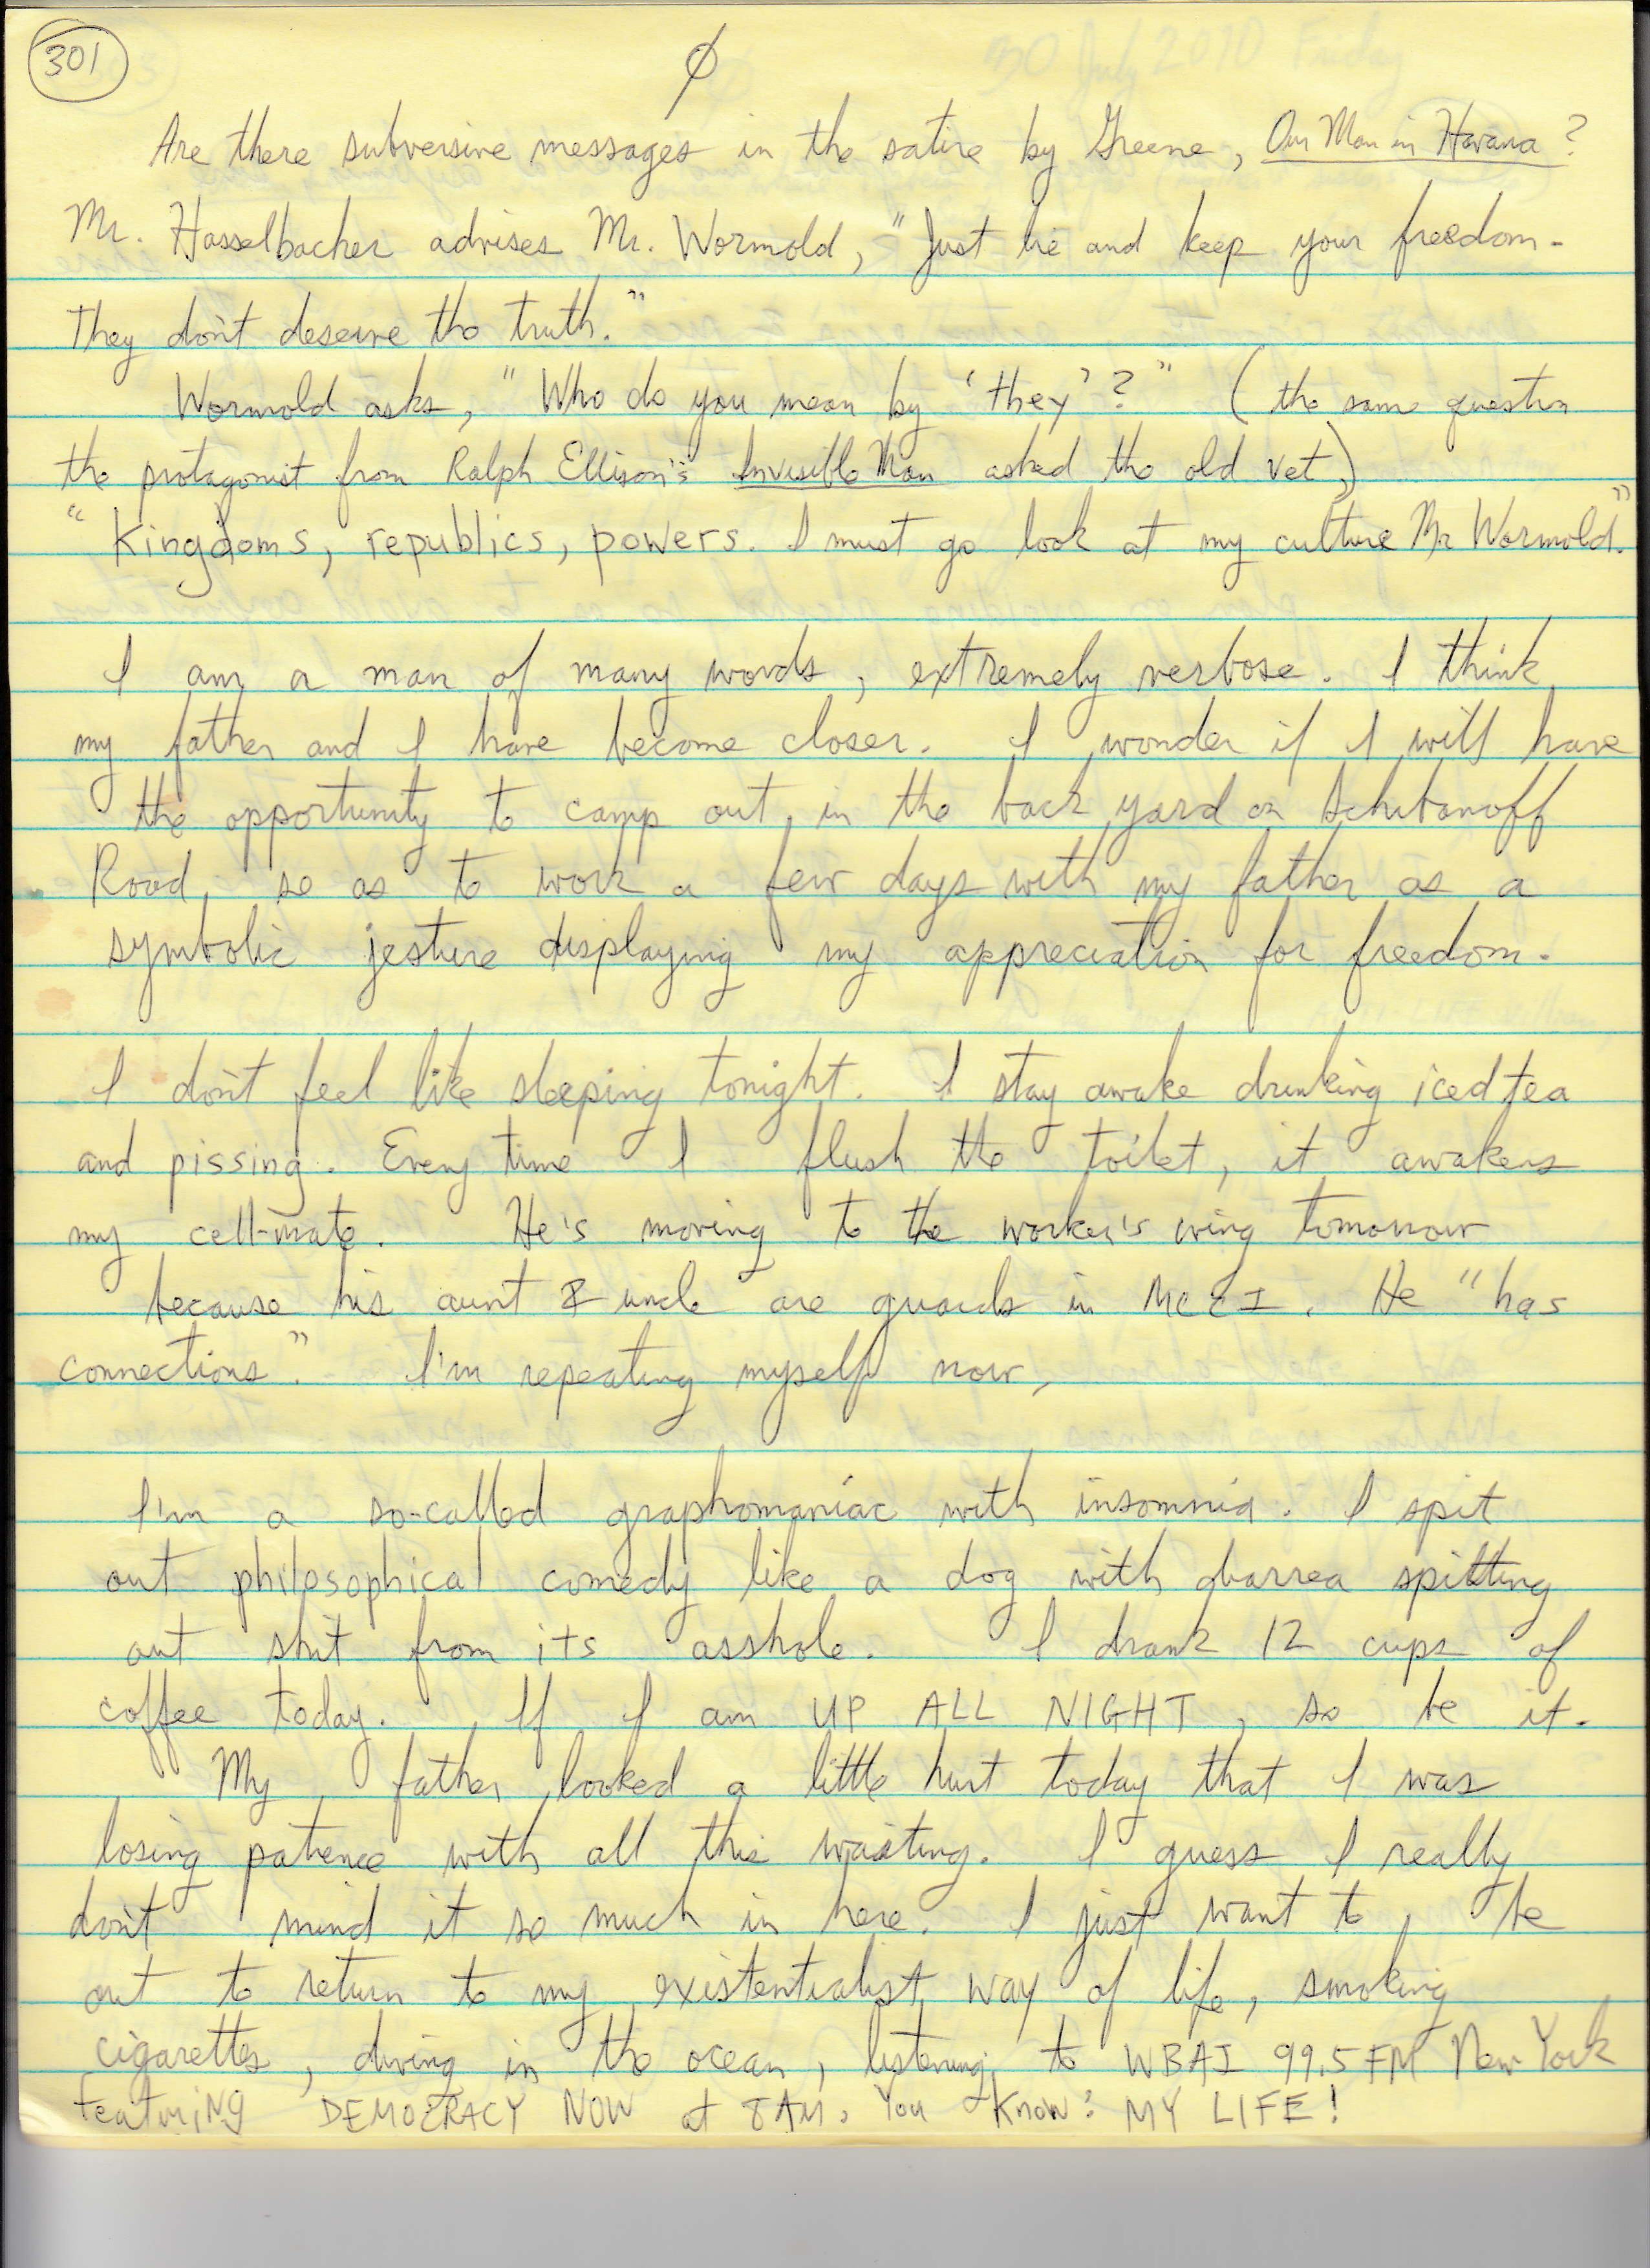 301
Ø
Are there subversive messages in the satire by Greene, Our Man in Havana?
Mr. Hasselbacher advises Mr. Wormold, "Just lie and keep your freedom.
They don't deserve the truth."
Wormold asks, "Who do you mean by 'they'?" (the same question
the protagonist from Ralph Ellison's Invisible Man asked the old vet,)
"Kingdoms, republics, powers. I must go look at my culture Mr Wormold."
I am a man of many words, extremely verbose. I think
my father and I have become closer. I wonder if I will have
the opportunity to camp out in the back yard on Schibanoff
Road, so as to work a few days with my father as a
symbolic jesture displaying my appreciation for freedom.
I don't feel like sleeping tonight. I stay awake drinking iced tea
and pissing. Every time I flush the toilet, it awakens
my cell-mate. He's moving to the worker's wing tomorrow
because his aunt & uncle are guards in MCCI. He "has
connections". I'm repeating myself now,
I'm a so-called graphomaniac with insomnia. I spit
out philosophical comedy like a dog with diarrea spitting
out shit from its asshole. I drank 12 cups of
coffee today. If I am UP ALL NIGHT, so be it.
My father looked a little hurt today that I was
losing patience with all this waiting. I guess I really
don't mind it so much in here. I just want to be
out to return to my existentialist way of life, smoking
cigarettes, diving in the ocean, listening to WBAI 99.5 FM New York
featuriNG DEMOCRACY NOW at 8AM. You Know: MY LIFE!